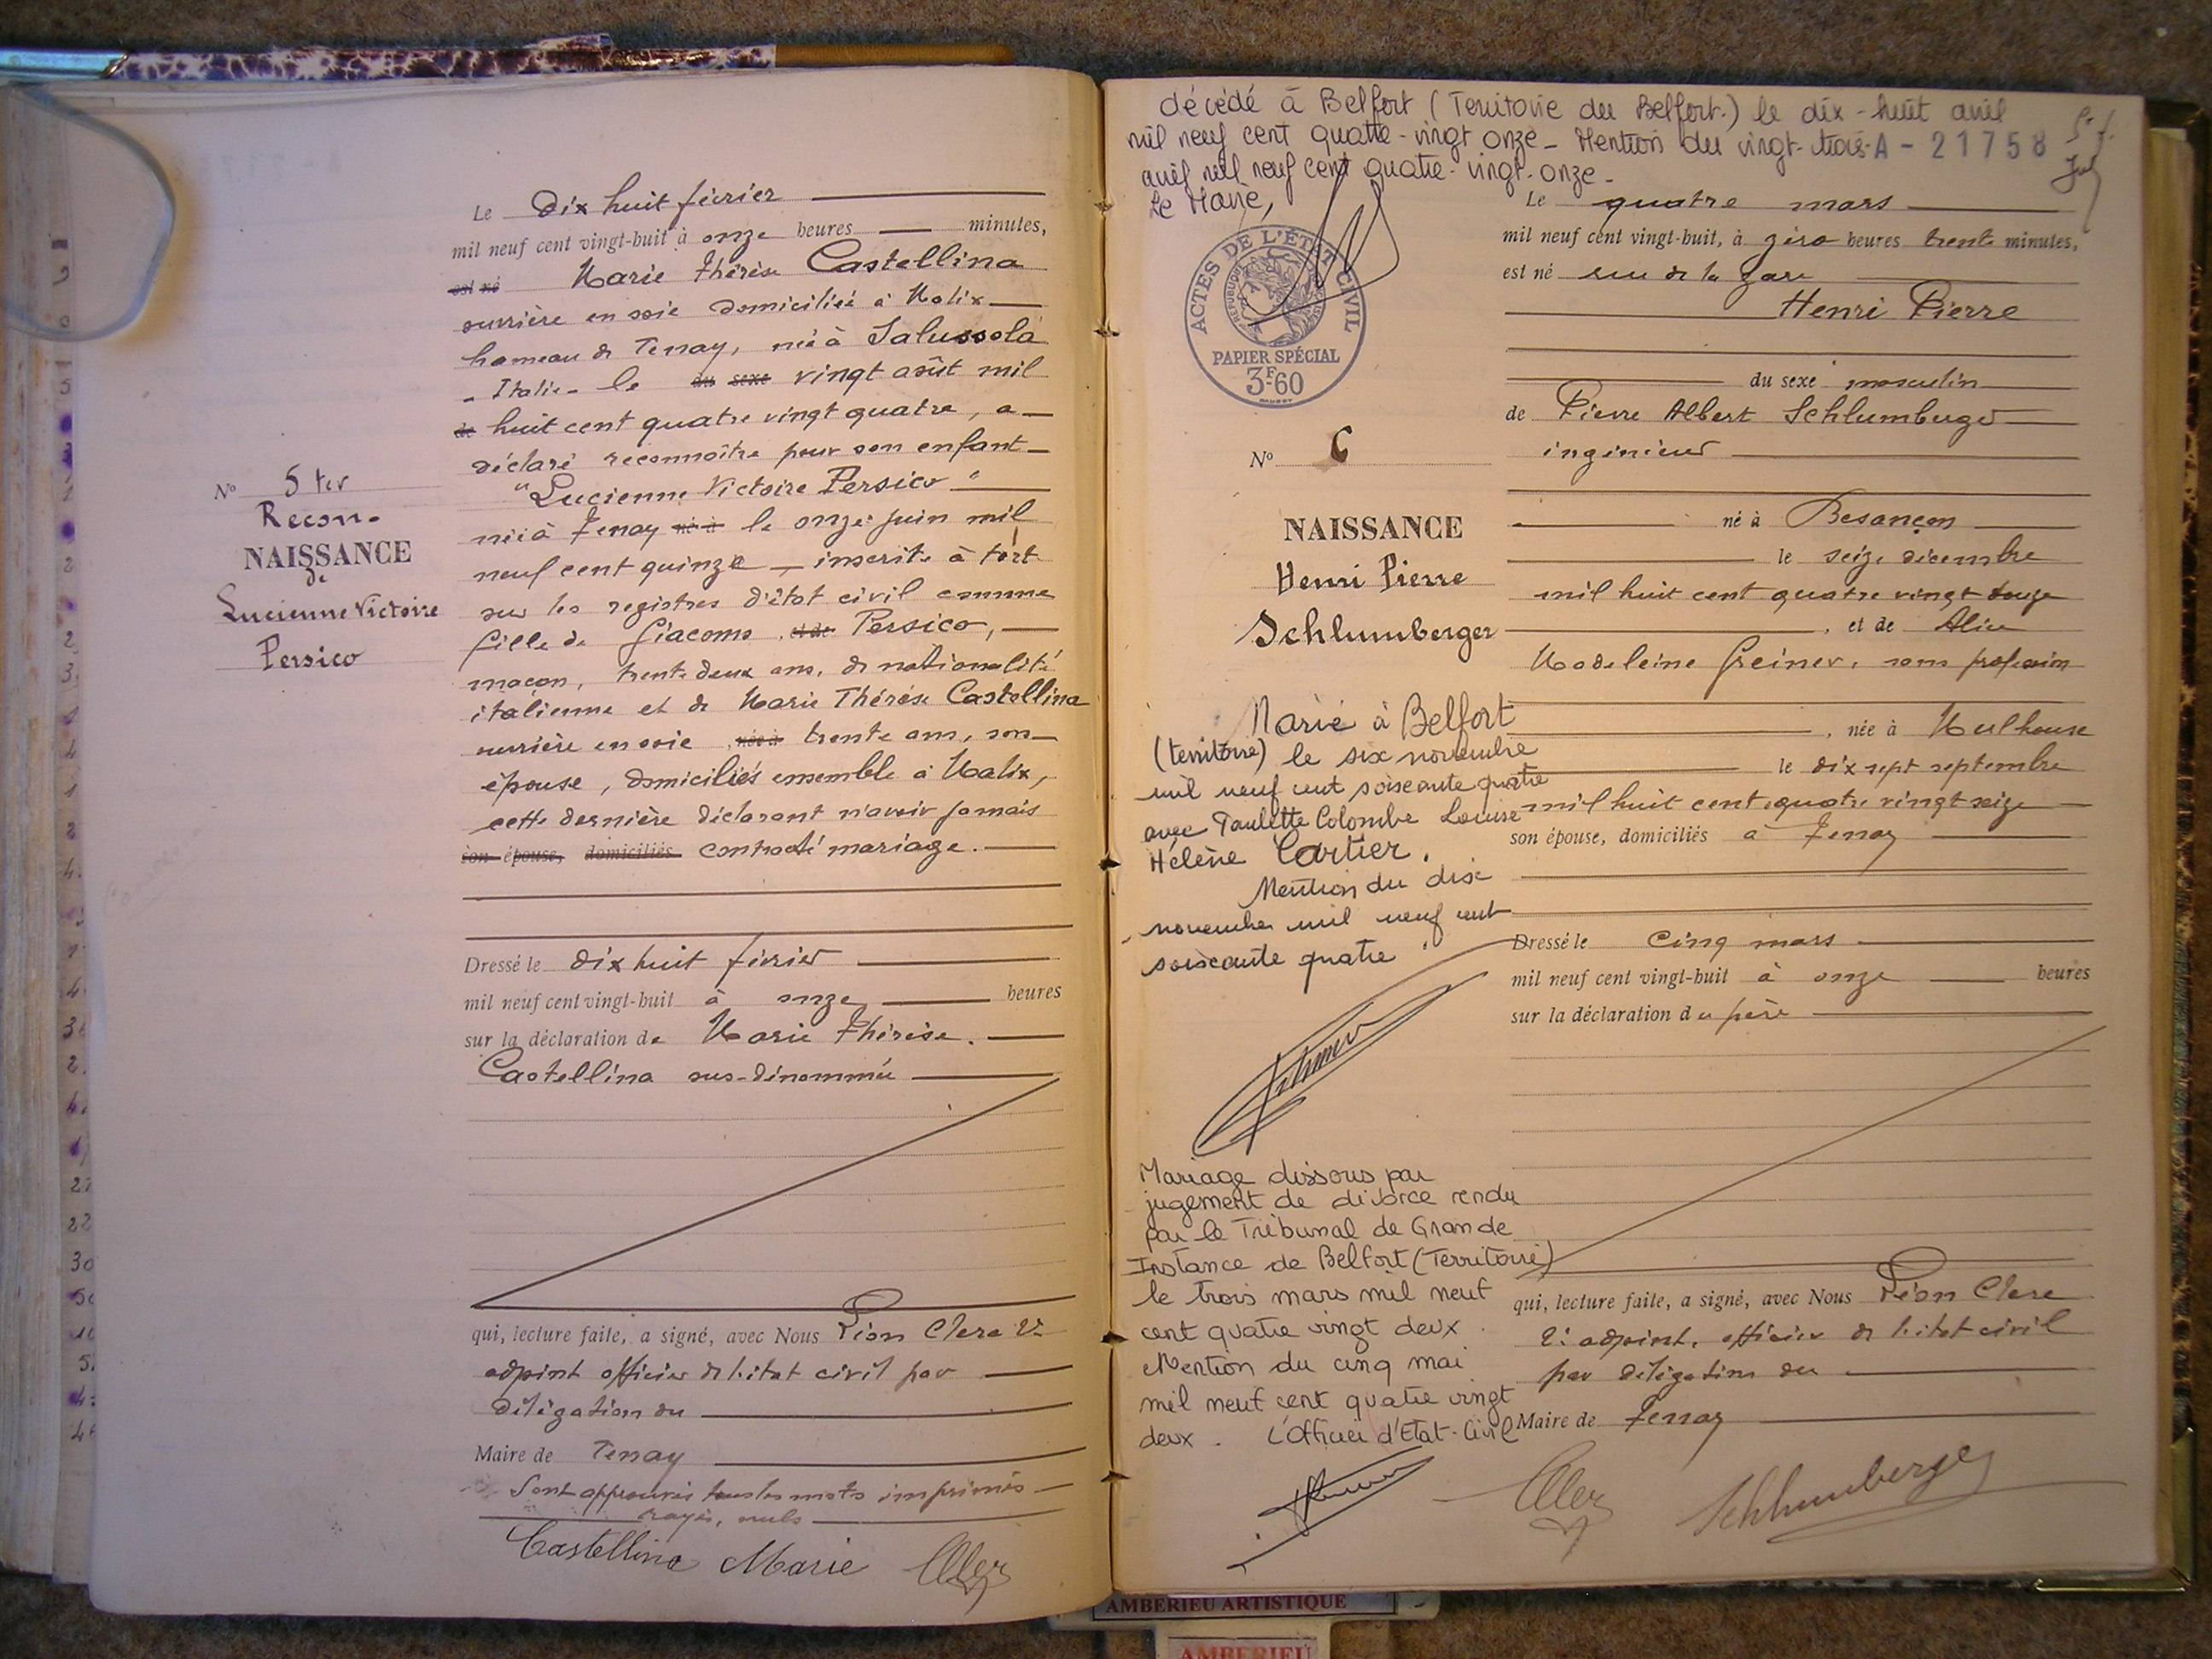 Le dix huit février
mil neuf cent vingt-huit à onze heures minutes,
est né Marie Thérèse Castellina
ouvrière en soie domiciliée à Malix
hameau de Tenay, née à Salussola
- Italie - le du sexe vingt août mil
de huit cent quatre vingt quatre, a
déclaré reconnaître pour son enfant
"Lucienne Victoire Persico"
née à Tenay né à le onze juin mil
neuf cent quinze - inscrite à tort
sur les registres d'état civil comme
fille de Giacomo et de Persico,
maçon, trente deux ans, de nationalité
italienne et de Marie Thérèse Castellina
ouvrière en soie, née à trente ans, son
épouse, domiciliés ensemble à Malix,
cette dernière déclarant n'avoir jamais
son épouse, domiciliés contracté mariage.
No 5 ter
Recon.
NAISSANCE
de
Lucienne Victoire
Persico
Dressé le dix huit février
mil neuf cent vingt-huit à onze heures
sur la déclaration de Marie Thérèse.
Castellina sus-dénommée
qui, lecture faite, a signé, avec Nous Léon Clerc 2e
adjoint officier de l'état civil par
délégation du
Maire de Tenay
Sont approuvés tous les mots imprimés
rayés, nuls
Castellina Marie
décédé à Belfort (Territoire du Belfort.) le dix-huit avril
mil neuf cent quatre-vingt onze - Mention du vingt-trois
avril mil neuf cent quatre-vingt-onze -
Le Maire,
A - 21758
ACTES DE L'ÉTAT CIVIL
PAPIER SPÉCIAL
3F.60
No 6
NAISSANCE
Henri Pierre
Schlumberger
Marié à Belfort
(territoire) le six novembre
mil neuf cent soixante quatre
avec Paulette Colombe Louise
Hélène Cartier.
Mention du dix
novembre mil neuf cent
soixante quatre
Mariage dissous par
jugement de divorce rendu
par le Tribunal de Grande
Instance de Belfort (Territoire)
le trois mars mil neuf
cent quatre vingt deux.
Mention du cinq mai
mil neuf cent quatre vingt
deux. L'Officier d'Etat-Civil
Le quatre mars
mil neuf cent vingt-huit, à zéro heures trente minutes,
est né rue de la gare
Henri Pierre
du sexe masculin
de Pierre Albert Schlumberger
ingénieur
né à Besançon
le seize décembre
mil huit cent quatre vingt douze
, et de Alice
Madeleine Greiner, sans profession
, née à Mulhouse
le dix sept septembre
mil huit cent quatre vingt seize
son épouse, domiciliés à Tenay
Dressé le cinq mars
mil neuf cent vingt-huit à onze heures
sur la déclaration du père
qui, lecture faite, a signé, avec Nous Léon Clerc
2e adjoint, officier de l'état civil
par délégation du
Maire de Tenay
Schlumberger
AMBERIEU ARTISTIQUE
AMBERIEU